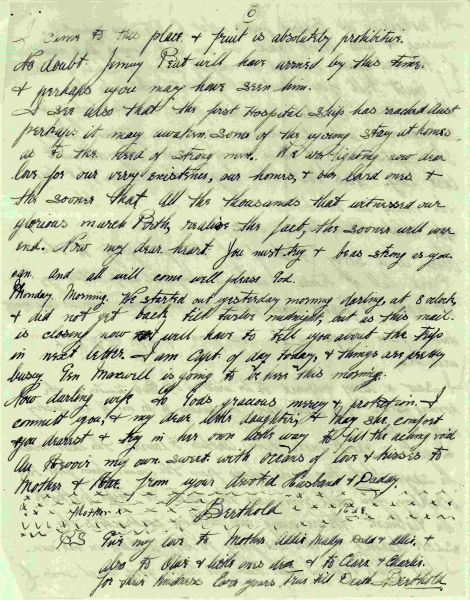 6
I came to this place & fruit is absolutely prohibitive.
No doubt Jimmy Peat will have arrived by this time
& perhaps you may have seen him.
I see also that the first Hospital Ship has reached Aust
perhaps it may awaken some of the young stay at homes
as to the need of strong men. We are fighting now dear
love for our very existence, our homes, & our loved ones &
the sooner that all the thousands that witnessed our
glorious march Perth, realise the fact, the sooner will war
end. Now my dear heart. You must try & be as strong as you
can and all will come well please God.
Monday Morning. We started out yesterday morning darling, at 8 oclock,
& did not get back till twelve midnight, but as this mail
is closing now will have to tell you about the trip
in next letter. I am Capt of day today, & things are pretty
busy Gen Maxwell is going to be here this morning.
Now darling wife to Gods gracious mercy & protection I
commit you, & my dear little daughter, & may she, comfort
you dearest & try in her own little way to fill the aching void
Au Revoir my own sweet with oceans of love & kisses to
Mother & from your devoted Husband & Daddy.
x x x x x x x x x x
x x Mother x x Berthold
x x x x x x x x x x
PS Give my love to Mother & &
also to Olive & little ones & to Clara & Charlie.
for their kindness Ever yours true till Death Berthold.